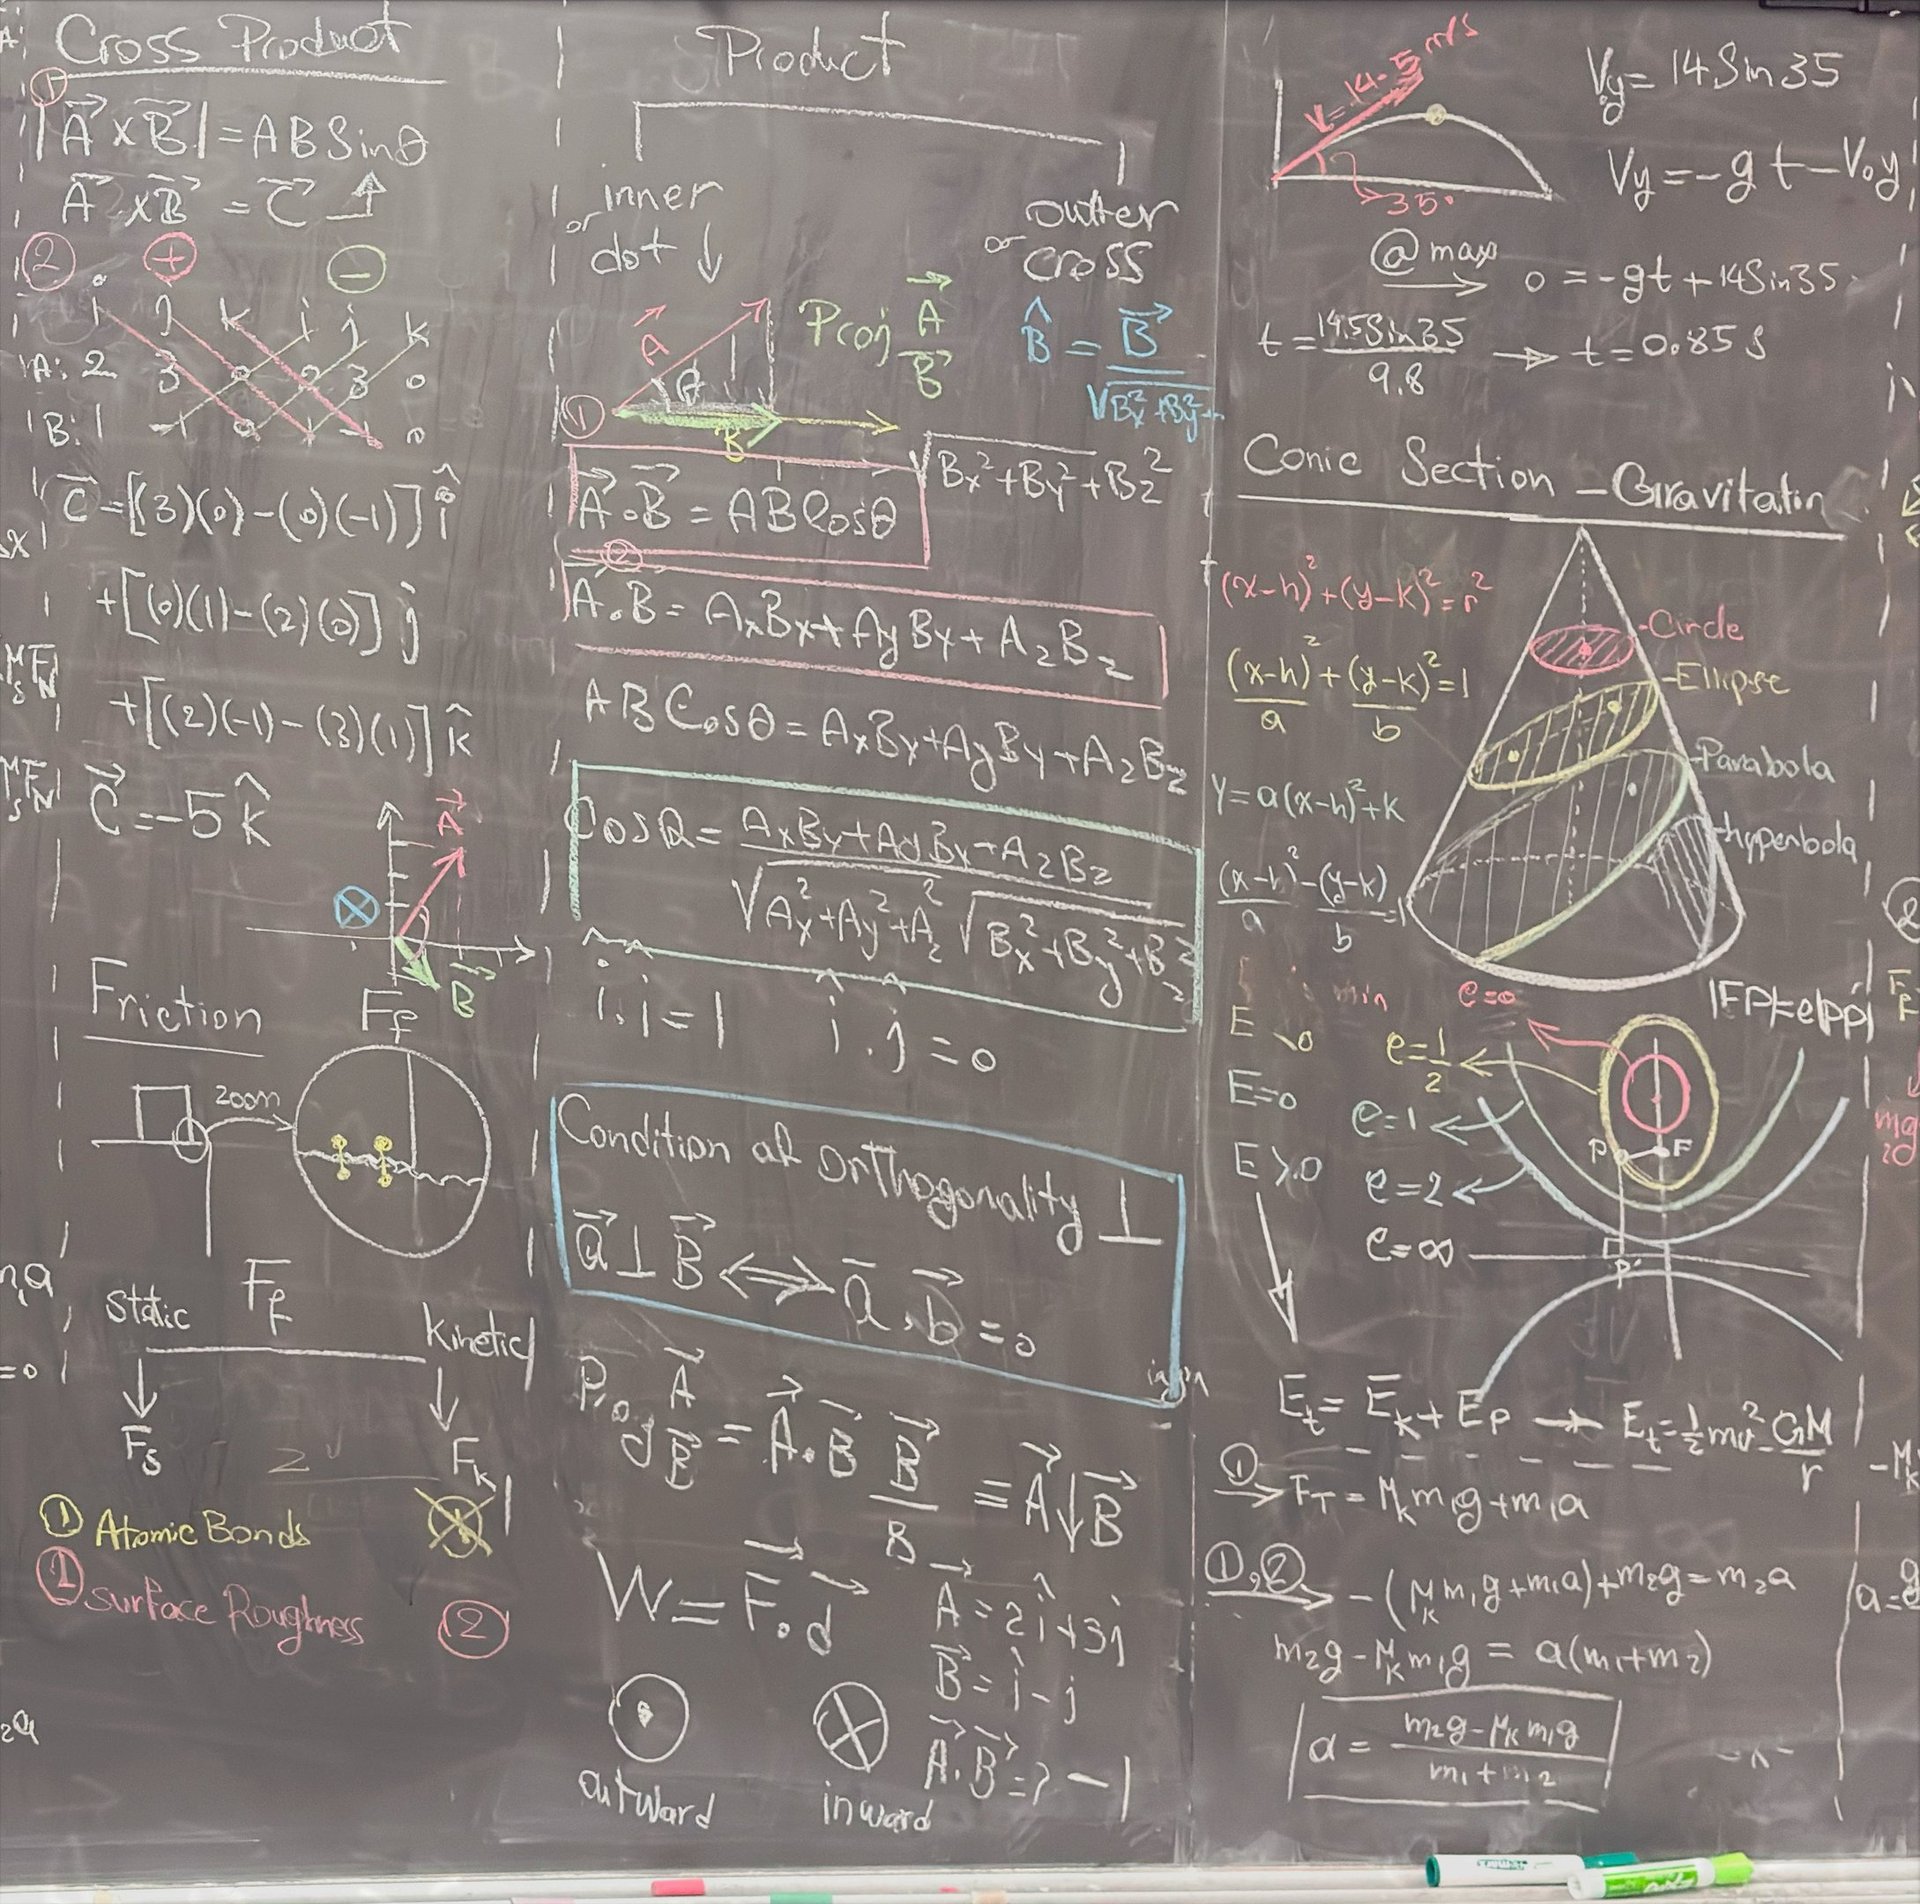 Cross Product
①
|A⃗ × B⃗| = AB Sinθ
A⃗ × B⃗ = C⃗
② + −
i j k i j k
A: 2 3 0 2 3 0
B: 1 -1 0 1 -1 0
C⃗ = [(3)(0) - (0)(-1)] î
+ [(0)(1) - (2)(0)] ĵ
+ [(2)(-1) - (3)(1)] k̂
C⃗ = -5 k̂
A⃗
B⃗
Friction
Ff
zoom
Ff
Static
kinetic
Fs
Fk
① Atomic Bonds
① Surface Roughness
②
Product
or inner
dot ↓
outter
or cross
A⃗
θ
B
Proj A⃗
B⃗
B̂ = B⃗ / √Bx² + By² +
①
A⃗ . B⃗ = AB Cosθ
√Bx² + By² + Bz²
②
A . B = AxBx + AyBy + AzBz
AB Cosθ = AxBx + AyBy + AzBz
Cosθ = AxBx + AyBy + AzBz / √Ax² + Ay² + Az² √Bx² + By² + Bz²
î . î = 1 î . ĵ = 0
Condition of Orthogonality ⊥
a⃗ ⊥ B⃗ ⟺ a⃗ . b⃗ = 0
Proj A⃗ B⃗ = A⃗ . B⃗ B⃗ / B ≡ A⃗ ↓ B⃗
W = F⃗ . d⃗
A⃗ = 2î + 3j
B⃗ = î - j
A⃗ . B⃗ = ? -1
outward
inward
V = 14.5 m/s
35°
Vy = 14 Sin 35
Vy = -gt - V₀y
@ max
0 = -gt + 14 Sin 35
t = 14.5 Sin 35 / 9.8 → t = 0.85 s
Conic Section - Gravitatin
(x-h)² + (y-k)² = r²
Circle
(x-h)² / a + (y-k)² / b = 1
Ellipse
y = a(x-h)² + k
Parabola
(x-h)² / a - (y-k) / b = 1
hyperbola
min
e = 0
|FP| = e|PP'|
E < 0
e = 1/2
E = 0
e = 1
E > 0
e = 2
e = ∞
P F
P'
Et = Ek + Ep → Et = 1/2 mv² - GM / r
① → FT = μk m₁g + m₁a
①,② → - (μk m₁g + m₁a) + m₂g = m₂a
m₂g - μk m₁g = a(m₁ + m₂)
a = m₂g - μk m₁g / m₁ + m₂